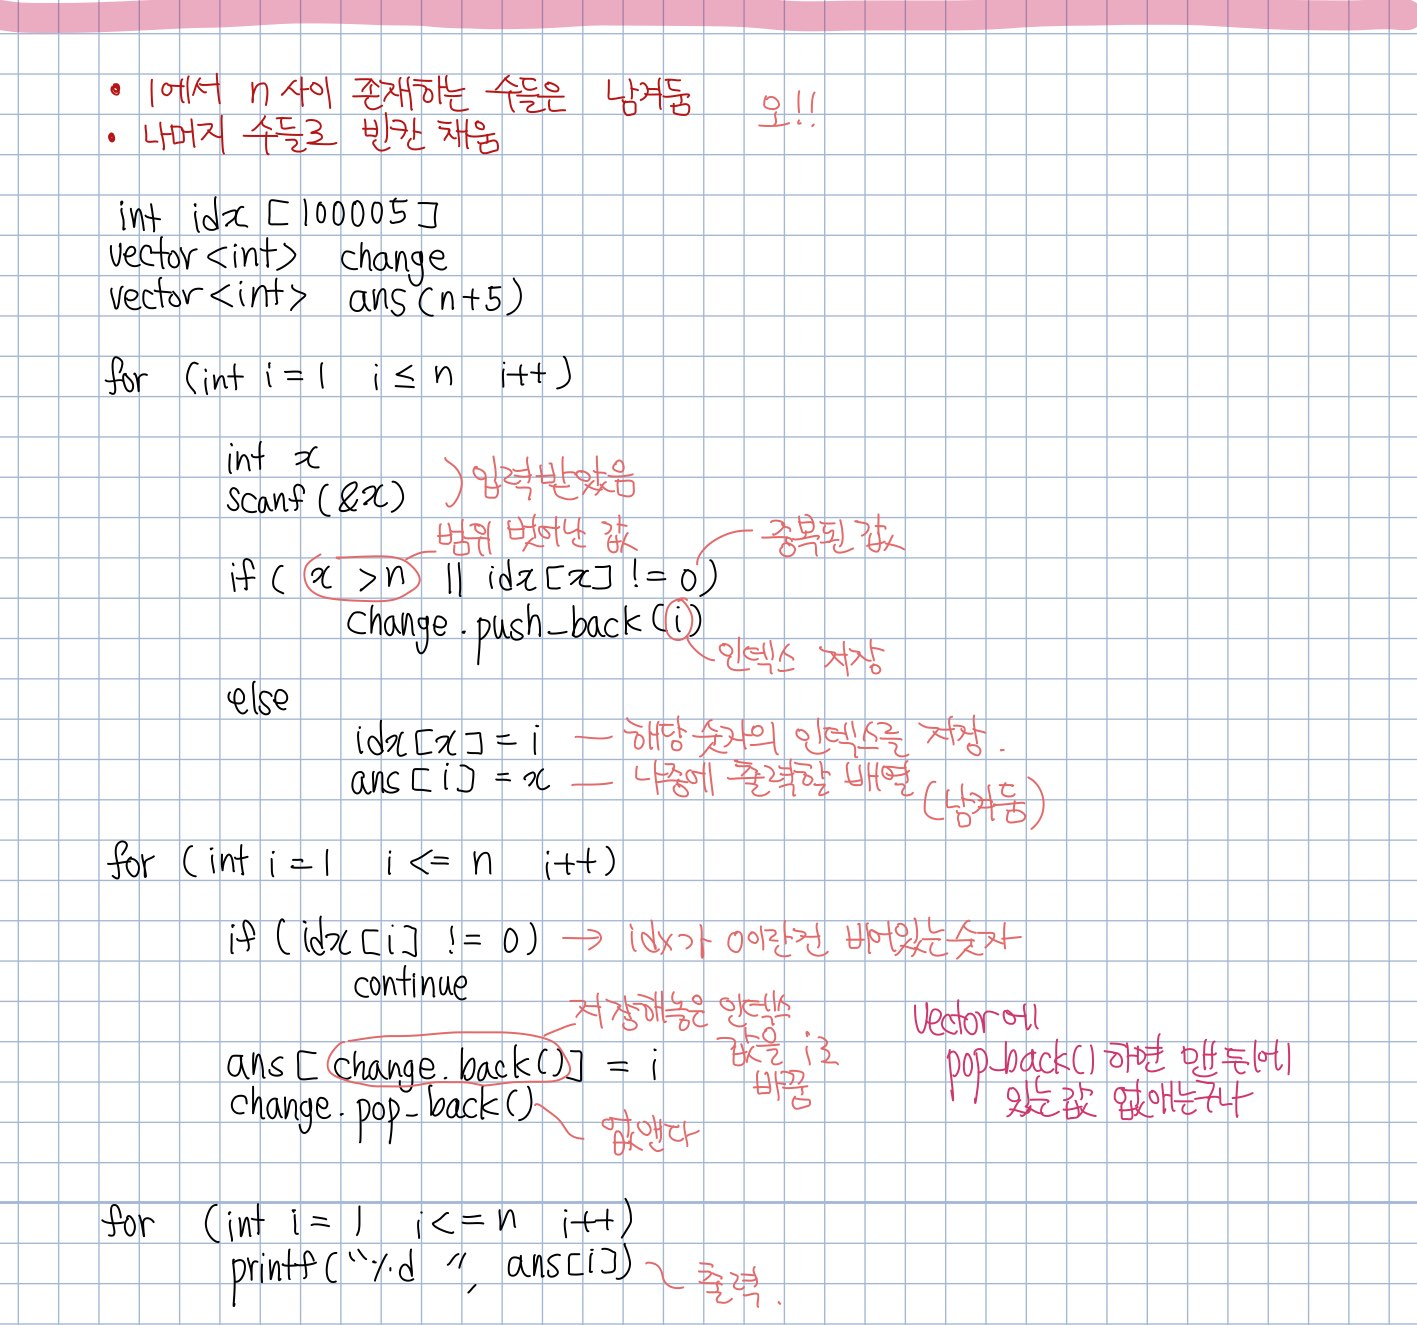 • 1에서 n 사이 존재하는 수들은 남겨둠
오!!
• 나머지 수들로 빈칸 채움
int idx [100005]
vector<int> change
vector<int> ans(n+5)
for (int i=1 i≤n i++)
int x
scanf(&x)
)입력받았음
범위 벗어난 값
중복된 값
if( x >n || idx[x] != 0)
change.push_back(i)
인덱스 저장
else
idx[x] = i — 해당 숫자의 인덱스를 저장.
ans[i] = x — 나중에 출력할 배열 (남겨둠)
for (int i=1 i <= n i++)
if (idx[i] != 0) → idx가 0이란건 비어있는숫자
continue
저장해놓은 인덱스
값을 i로
바꿈
ans[change.back()] = i
change.pop_back()
없앤다
vector에
pop_back()하면 맨 뒤에
있는값 없애는구나
for (int i = 1 i<=n i++)
printf("%d ", ans[i])
출력.